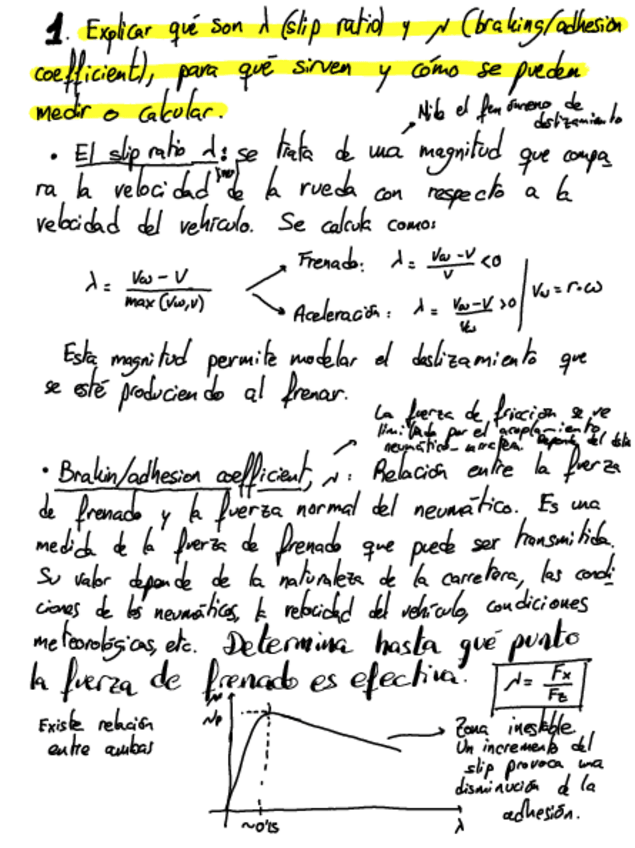 1. Explicar qué son λ (slip ratio) y μ (braking/adhesion
coefficient), para qué sirven y cómo se pueden
medir o calcular.
Mide el fenómeno de
deslizamiento
• El slip ratio λ: se trata de una magnitud que compa
ra la velocidad de la rueda con respecto a la
velocidad del vehículo. Se calcula como:
λ = (Vω - V) / max(Vω, V)
Frenado: λ = (Vω - V) / V < 0
Aceleración: λ = (Vω - V) / Vω > 0
Vω = r·ω
Esta magnitud permite modelar el deslizamiento que
se esté produciendo al frenar.
La fuerza de fricción se ve
limitada por el acoplamiento
neumático-carretera. Depende del
• Brakin/adhesion coefficient, μ: Relación entre la fuerza
de frenado y la fuerza normal del neumático. Es una
medida de la fuerza de frenado que puede ser transmitida.
Su valor depende de la naturaleza de la carretera, las condi
ciones de los neumáticos, la velocidad del vehículo, condiciones
meteorológicas, etc. Determina hasta qué punto
la fuerza de frenado es efectiva.
μ = Fx / Fz
Existe relación
entre ambas
μ
μp
~0'15
λ
Zona inestable
Un incremento del
slip provoca una
disminución de la
adhesión.